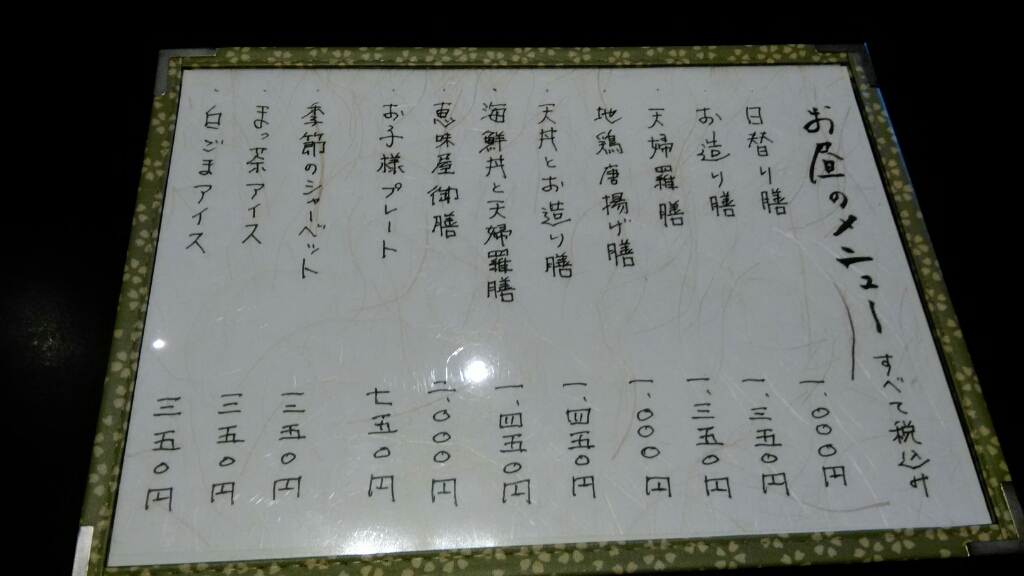 お昼のメニュー すべて税込み
・日替り膳 一、000円
・お造り膳 一、三五0円
・天婦羅膳 一、三五0円
・地鶏唐揚げ膳 一、000円
・天丼とお造り膳 一、四五0円
・海鮮丼と天婦羅膳 一、四五0円
・恵味屋御膳 二、000円
・お子様プレート 七五0円
・季節のシャーベット 三五0円
・まっ茶アイス 三五0円
・白ごまアイス 三五0円